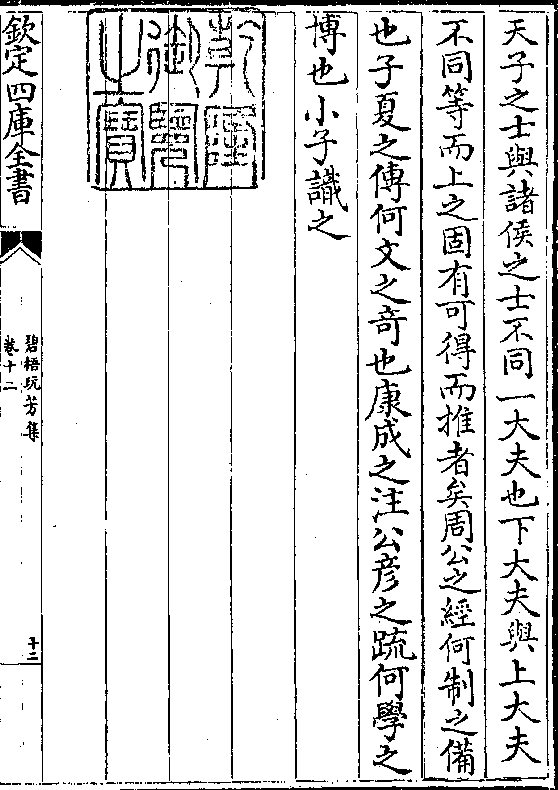 天子之士與諸侯之士不同一大夫也下大夫與上大夫
不同等而上之固有可得而推者矣周公之經何制之備
也子夏之傳何文之奇也康成之注公彦之䟽何學之
博也小子識之
乾隆
御覽
之寶
欽定四庫全書
碧梧玩芳集
卷十二
十二